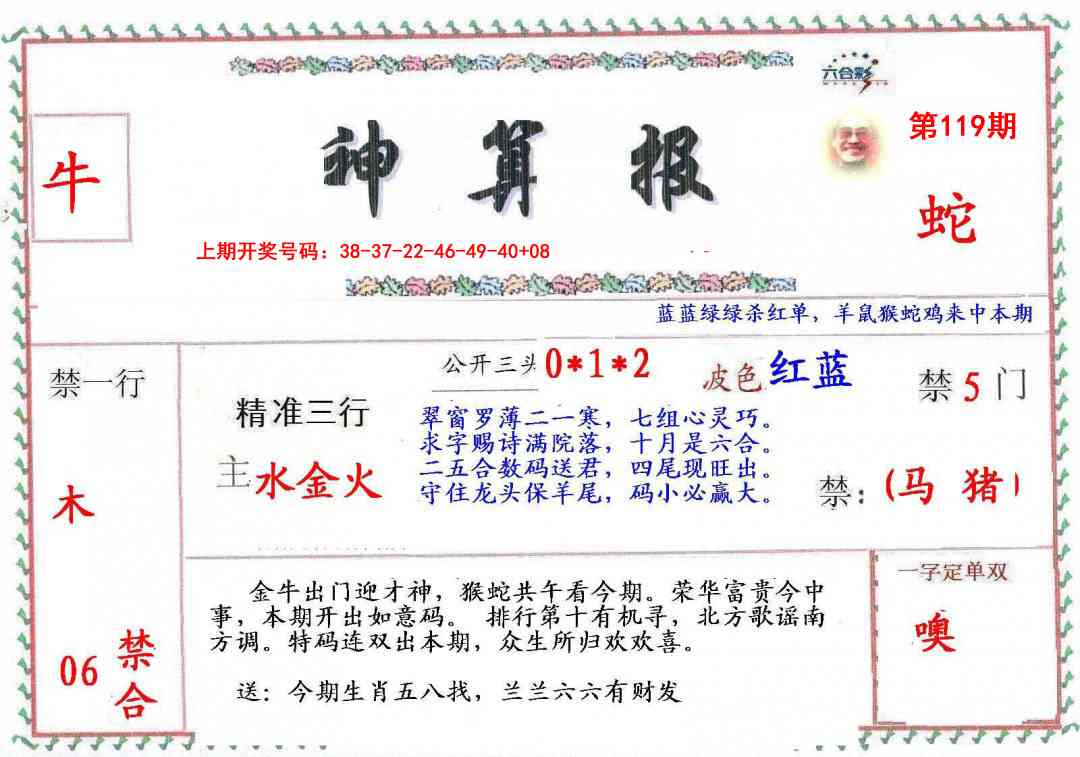 六合彩
神算报
第119期
牛
蛇
上期开奖号码：38-37-22-46-49-40+08
蓝蓝绿绿杀红单，羊鼠猴蛇鸡来中本期
禁一行
木
06
禁合
公开三头 0*1*2
波色 红蓝
禁 5 门
精准三行
主 水金火
翠窗罗薄二一寒，七组心灵巧。
求字赐诗满院落，十月是六合。
二五合数码送君，四尾现旺出。
守住龙头保羊尾，码小必赢大。
禁：（马 猪）
金牛出门迎才神，猴蛇共午看今期。荣华富贵今中
事，本期开出如意码。 排行第十有机寻，北方歌谣南
方调。特码连双出本期，众生所归欢欢喜。
送：今期生肖五八找，兰兰六六有财发
一字定单双
噢